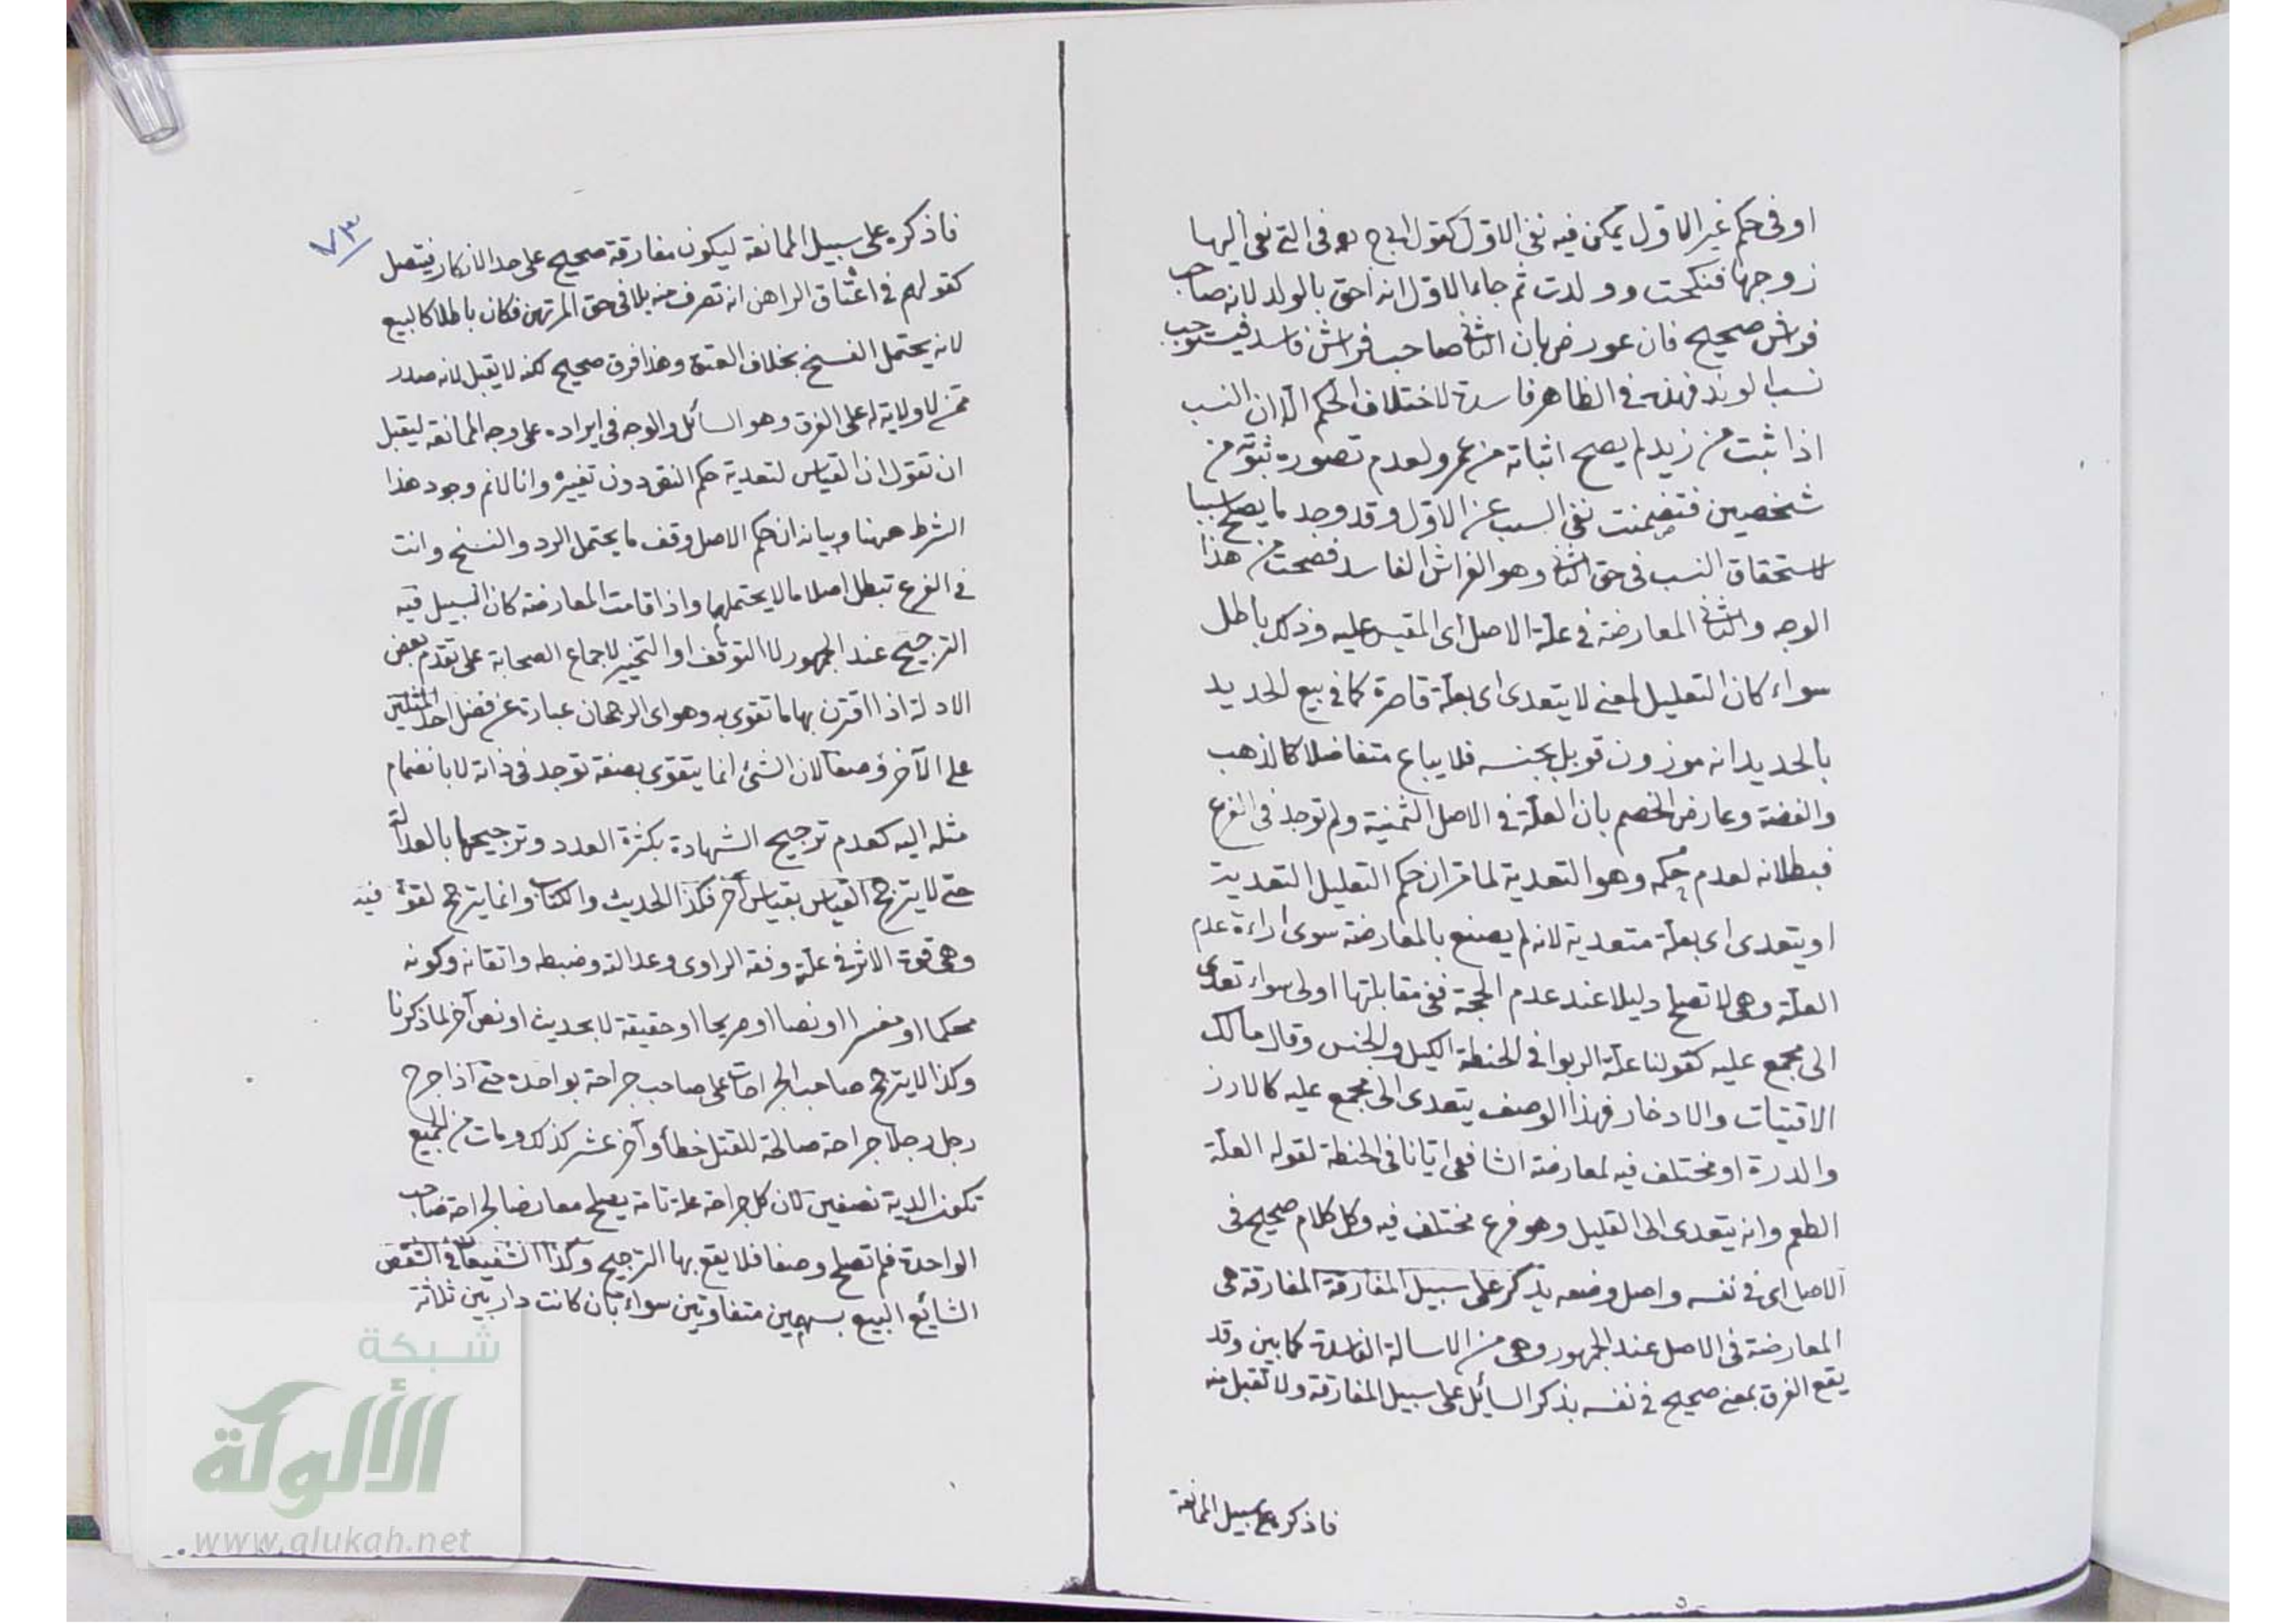 او فى حكم غير الاول يمكن فيه نفى الاول كقول ابى ح فى التى نعى اليها
زوجها فنكحت وولدت ثم جاء الاول انه احق بالولد لانه صاحب
فراش صحيح فان عورض بان الثانى صاحب فراش فاسد فيستوجب
نسب الولد فهذه فى الظاهر فاسدة لاختلاف الحكم الا ان النسب
اذا ثبت من زيد لم يصح اثباته من عمرو لعدم تصور ثبوته من
شخصين فتضمنت نفى النسب عن الاول وقد وجد ما يصلح سببا
لاستحقاق النسب فى حق الثانى وهو الفراش الفاسد فصحت من هذا
الوجه والثانى المعارضة فى علة الاصل اى المقيس عليه وذلك باطل
سواء كان التعليل بمعنى لا يتعدى اى بعلة قاصرة كما فى بيع الحديد
بالحديد انه موزون قوبل بجنسه فلا يباع متفاضلا كالذهب
والفضة وعارض الخصم بان العلة فى الاصل الثمنية ولم توجد فى الفرع
فبطلانه لعدم حكمه وهو التعدية لما مر ان حكم التعليل التعدية
او يتعدى اى بعلة متعدية لانه لم يصنع بالمعارضة سوى اراءة عدم
العلة وهى لا تصلح دليلا عند عدم الحجة ففى مقابلتها اولى سواء تعدى
الى مجمع عليه كقولنا علة الربوا فى الحنطة الكيل والجنس وقال مالك
الاقتيات والادخار فهذا الوصف يتعدى الى مجمع عليه كالارز
والدرة او مختلف فيه لمعارضة الشافعى ايانا فى الحنطة لقوله العلة
الطعم وانه يتعدى الى القليل وهو فرع مختلف فيه وكل كلام صحيح فى
الاصل اى فى نفسه واصل وضعه يذكر على سبيل المفارقة المفارقة هى
المعارضة فى الاصل عند الجمهور وهى من الاسالة الفاسدة كما بين وقد
يقع الفرق بمعنى صحيح فى نفسه يذكر السائل على سبيل المفارقة ولا تقبل منه
فاذكره على سبيل الممانعة
٧٣
فاذكره على سبيل الممانعة ليكون مفارقة صحيح على حد الانكار فيتصل
كقولهم فى اعتاق الراهن انه تصرف منه يلاقى حق المرتهن فكان باطلا كالبيع
لانه يحتمل الفسخ بخلاف العتق وهذا فرق صحيح لكنه لا يقبل لانه صدر
ممن لا ولاية له على الفرق وهو السائل والوجه فى ايراده على وجه الممانعة ليقبل
ان تقول ان القياس لتعدية حكم النص دون تغييره وانا لا نم وجود هذا
الشرط ههنا وبيانه ان حكم الاصل وقف ما يحتمل الرد والفسخ وانت
فى الفرع تبطل اصلا ما لا يحتملهما واذا قامت المعارضة كان السبيل فيه
الترجيح عند الجمهور لا التوقف او التخيير لاجماع الصحابة على تقدم بعض
الادلة اذا اقترن بها ما تقوى به وهو اى الرجحان عبارة عن فضل احد المثلين
على الآخر وصفا لان الشئ انما يتقوى بصفة توجد فى ذاته لا بانضمام
مثله اليه كعدم ترجيح الشهادة بكثرة العدد وترجيحها بالعدالة
حتى لا يترجح القياس بقياس آخر فكذا الحديث والكتاب وانما يترجح لقوة فيه
وهى قوة الاثر فى علة وفقه الراوى وعدالته وضبطه واتقانه وكونه
محكما او مفسرا او نصا او صريحا او حقيقة لا بحديث او نص آخر لما ذكرنا
وكذا لا يترجح صاحب الجراحات على صاحب جراحة بواحدة حتى اذا جرح
رجل رجلا جراحة صالحة للقتل خطأ وآخر عشر كذلك ومات من الجميع
تكون الدية نصفين لان كل جراحة علة تامة يصلح معارضا لجراحة صاحب
الواحدة فلم تصلح وصفا فلا يقع بها الترجيح وكذا الشفيعان فى الشقص
الشايع المبيع بسهمين متفاوتين سواء بان كانت دار بين ثلاثة
شبكة
الألوكة
www.alukah.net